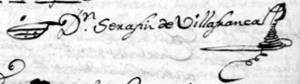 Dn Serafin de Villafranca